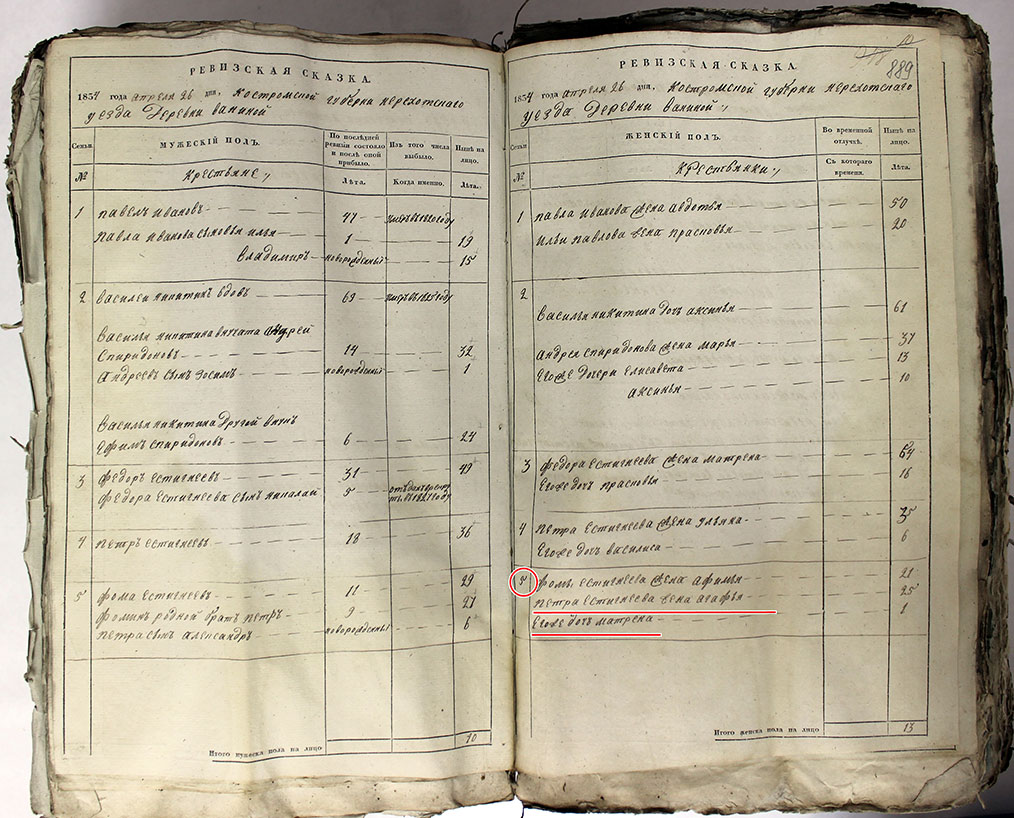 РЕВИЗСКАЯ СКАЗКА.
1834 года апреля 26 дня, Костромской губѣрни нерехотскаго
уезда Деревни ваниной
Семьи.
МУЖЕСКІЙ ПОЛЪ.
По послѣдней ревизіи состояло и послѣ оной прибыло.
Изъ того числа выбыло.
Нынѣ на лицо.
№
Крестьяне
Лѣта.
Когда именно.
Лѣта.
1 павелъ ивановъ 47
павла иванова сыновья илья 1 19
владимиръ новорожденный 15
2 василеи никитинъ вдовъ 69
василья никитина внучата андрей
спиридоновъ 14 32
андреевъ сынъ зосимъ новорожденный 1
василья никитина другой внукъ
ефимъ спиридоновъ 6 24
3 федоръ естигнеевъ 31 49
федора естигнеева сынъ николай 5
4 петръ естигнеевъ 18 36
5 фома естигнеевъ 11 29
фоминъ родной братъ петръ 9 27
петра сынъ александръ новорожденный 6
Итого мужеска пола на лицо 10
889
РЕВИЗСКАЯ СКАЗКА.
1834 года апреля 26 дня, Костромской губѣрни нерехотскаго
уезда Деревни ваниной
Семьи.
ЖЕНСКІЙ ПОЛЪ.
Во временной отлучкѣ.
Нынѣ на лицо.
№
Крестьянки
Съ котораго времени.
Лѣта.
1 павла иванова жена авдотья 50
ильи павлова жена прасковья 20
2
василья никитина дочь аксинья 61
андрея спиридонова жена марья 37
Егоже дочери елисавета 13
аксинья 10
3 федора естигнеева жена матрена 54
Егоже дочь прасковья 16
4 петра естигнеева жена ульяна 35
Егоже дочь василиса 6
5 фомы естигнеева жена афимья 21
петра естигнеева жена агафья 25
Егоже дочь матрена 1
Итого женска пола на лицо 13